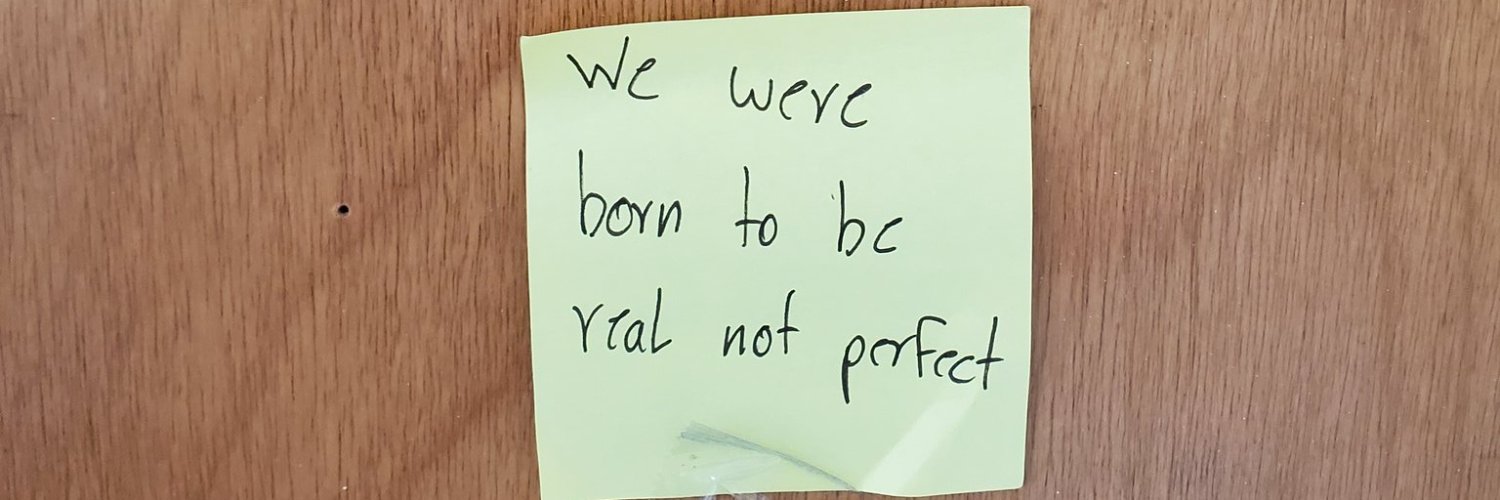 We were
born to be
real not perfect